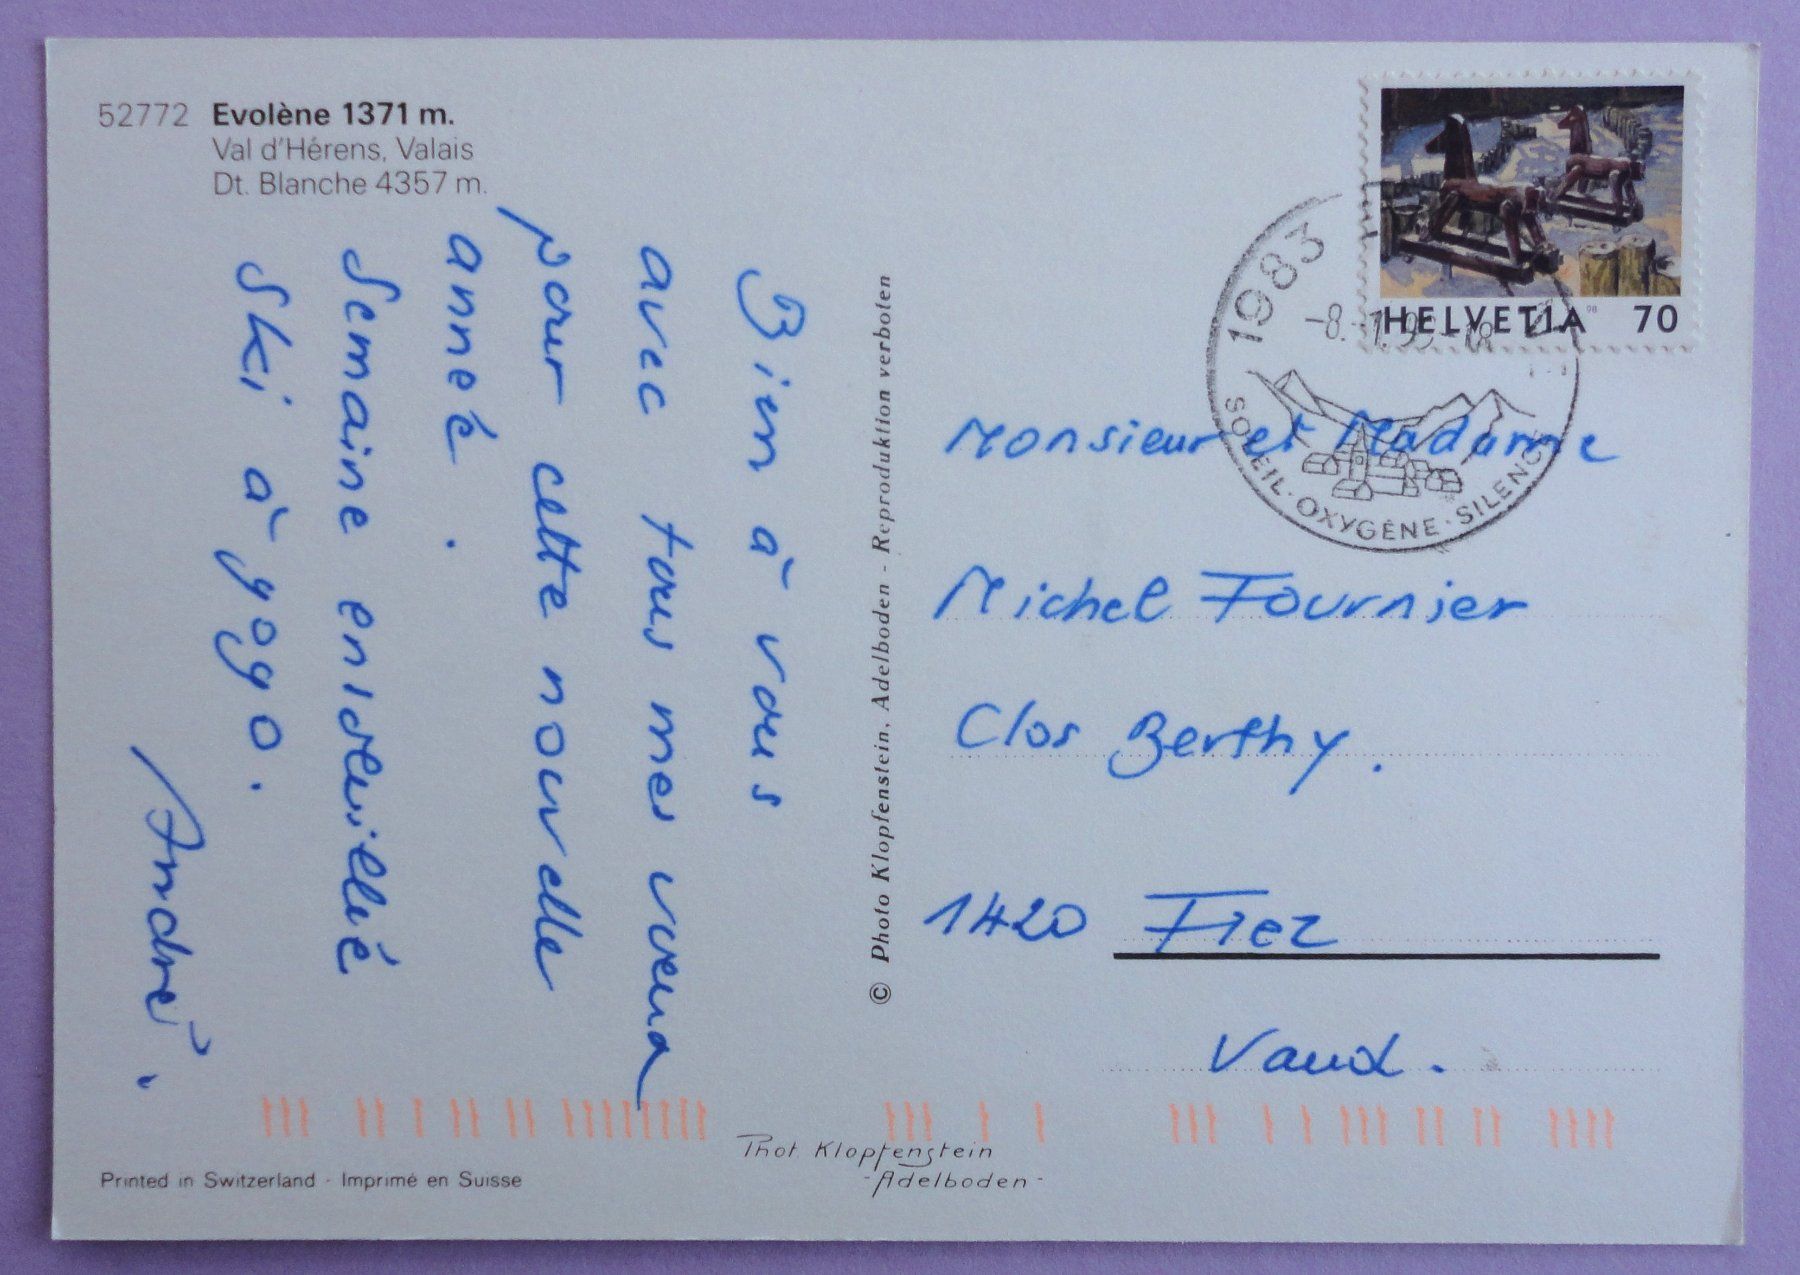 52772 Evolène 1371 m.
Val d'Hérens, Valais
Dt. Blanche 4357 m.
Bien à vous
avec tous mes vœux
pour cette nouvelle
anneé.
Semaine ensoleillé
Ski à gogo.
André.
© Photo Klopfenstein, Adelboden - Reproduktion verboten
HELVETIA 70
98
1983
-8.-1.99-18
SOLEIL·OXYGÈNE·SILENCE
Monsieur et Madame
Michel Fournier
Clos Berthy.
1420 Fiez
Vaud.
Phot Klopfenstein
-Adelboden-
Printed in Switzerland - Imprimé en Suisse